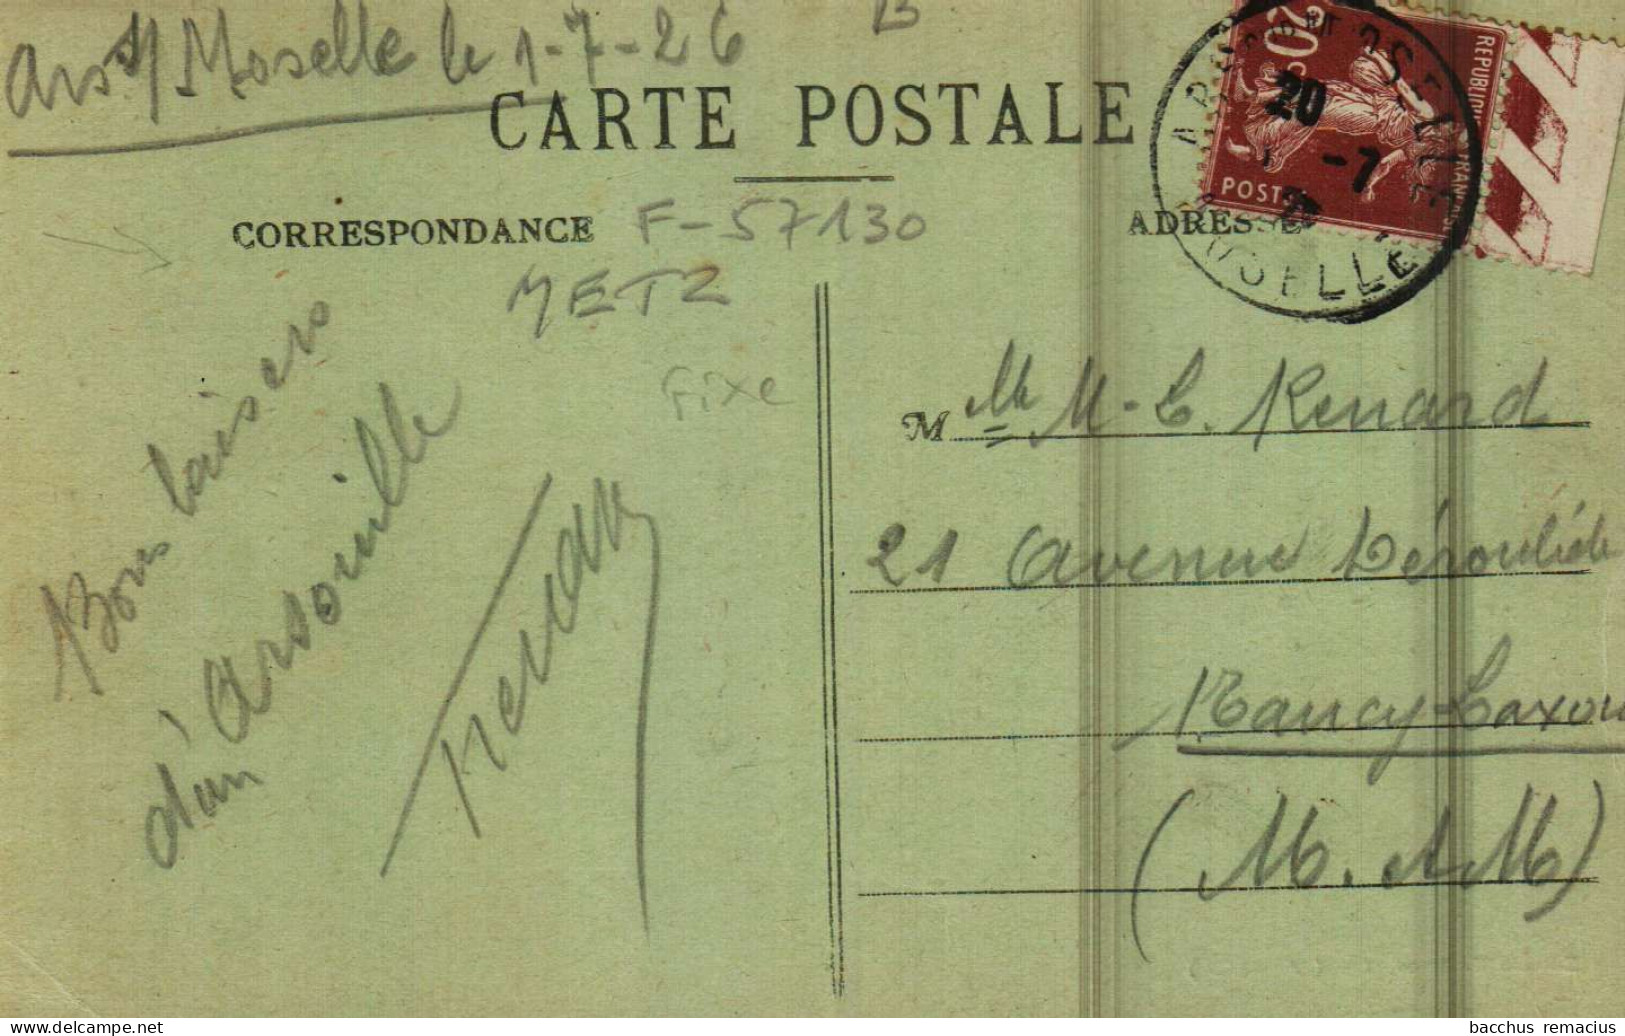 Ars s/ Moselle le 1-7-26
B
CARTE POSTALE
CORRESPONDANCE
F-57130
METZ
Fixe
ADRESSE
20c
REPUBLIQUE FRANCAISE
POSTES
20
-7
MOSELLE
Bons baisers
d'un Arsouille
Renard
M lle M-C. Renard
21 Avenue Déroulède
Nancy-Laxou
(M. et M)
bacchus remacius